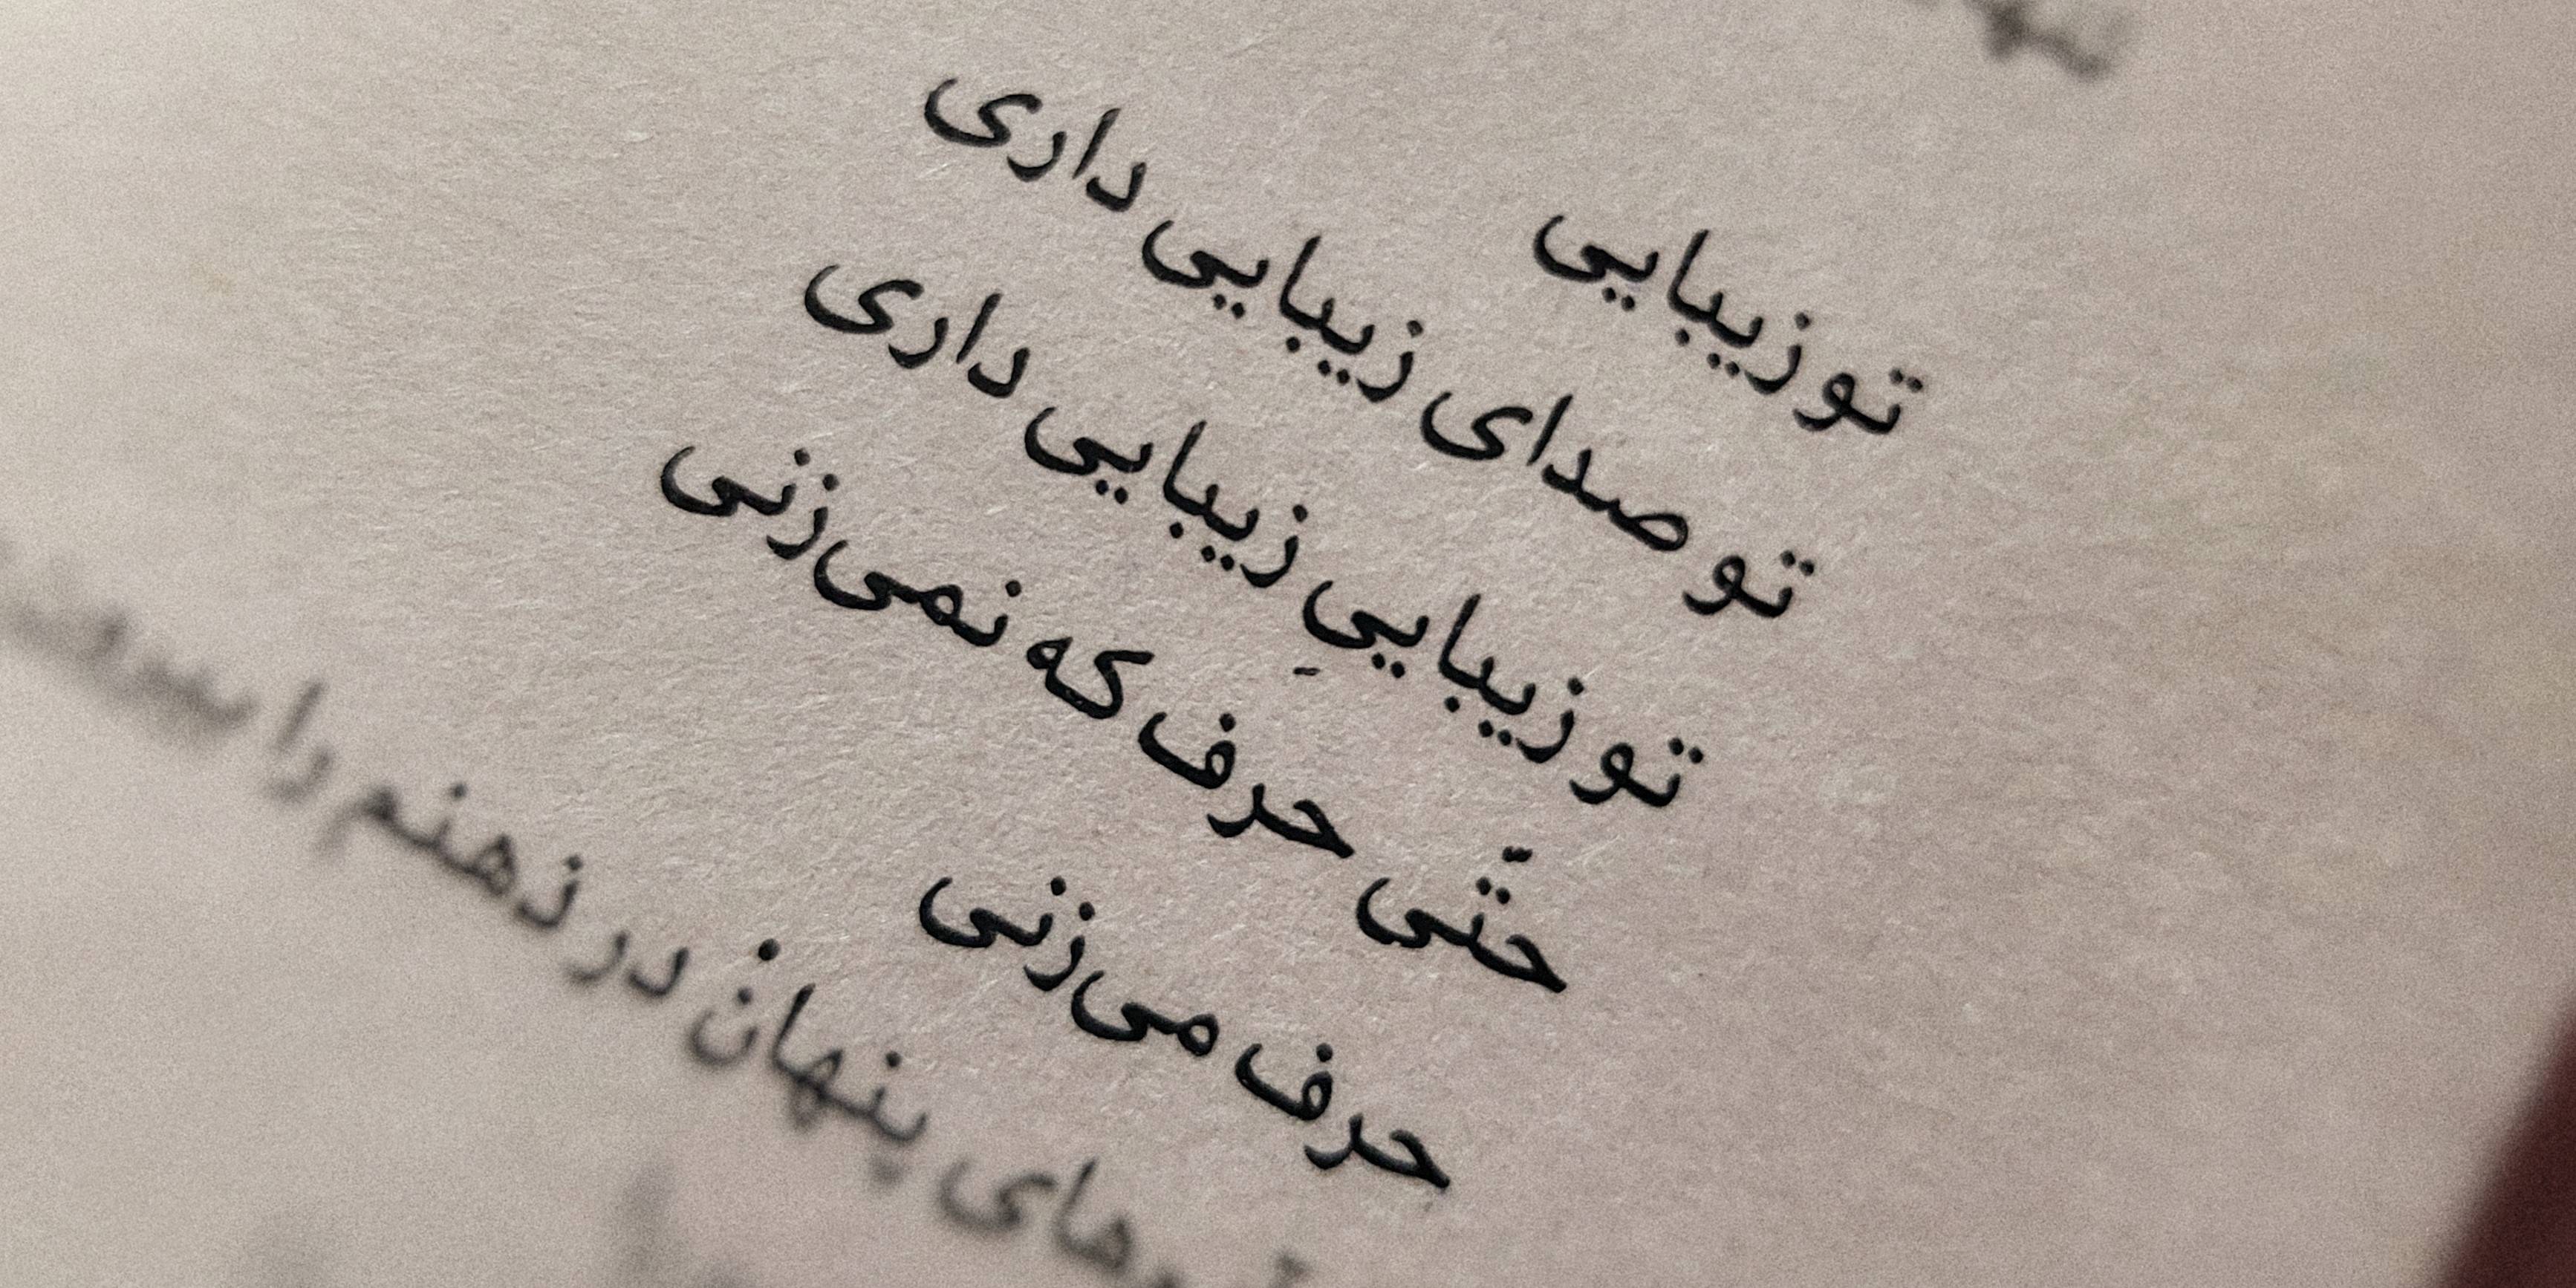 تو زیبایی
تو صدای زیبایی داری
تو زیباییِ زیبایی داری
حتّی حرف که نمی‌زنی
حرف می‌زنی
های پنهان در ذهنم را